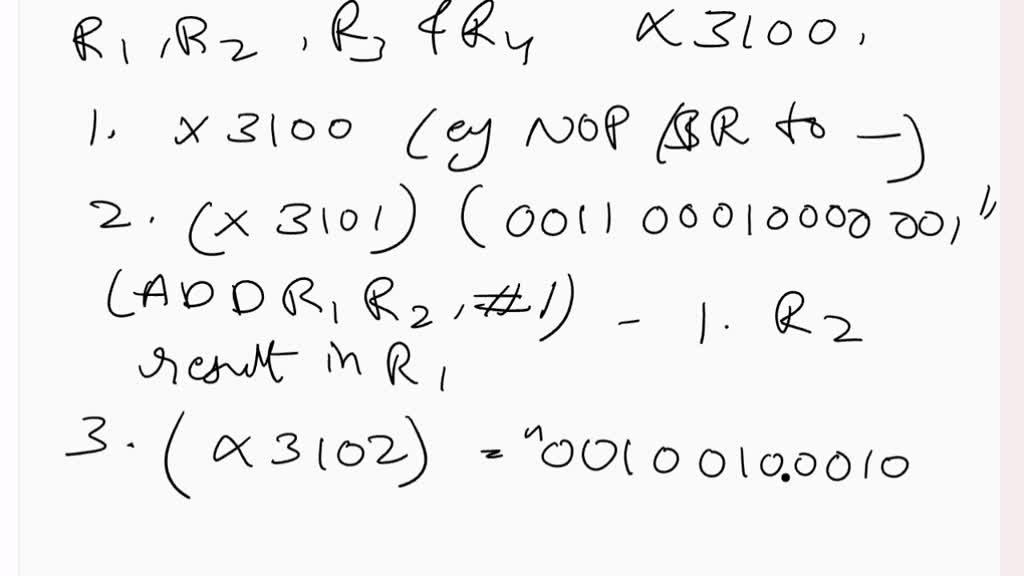 R1, R2, R3 & R4 x3100,
1. x3100 (eg NOP / BR to —)
2. (x3101) (0011 00010000 001"
(ADD R1 R2, #1) - 1. R2
result in R1
3. (x3102) = "0010 010.0010